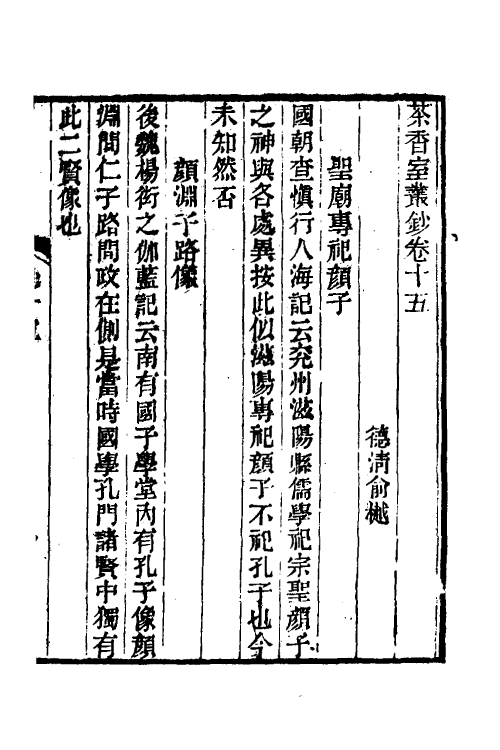 茶香室叢鈔卷十五
德淸俞樾
聖廟專祀顔子
國朝查愼行人海記云兖州滋陽縣儒學祀宗聖顔子
之神與各處異按此似滋陽專祀顔子不祀孔子也今
未知然否
顔淵子路像
後魏楊衒之伽藍記云南有國子學堂內有孔子像顔
淵問仁子路問政在側是當時國學孔門諸賢中獨有
此二賢像也